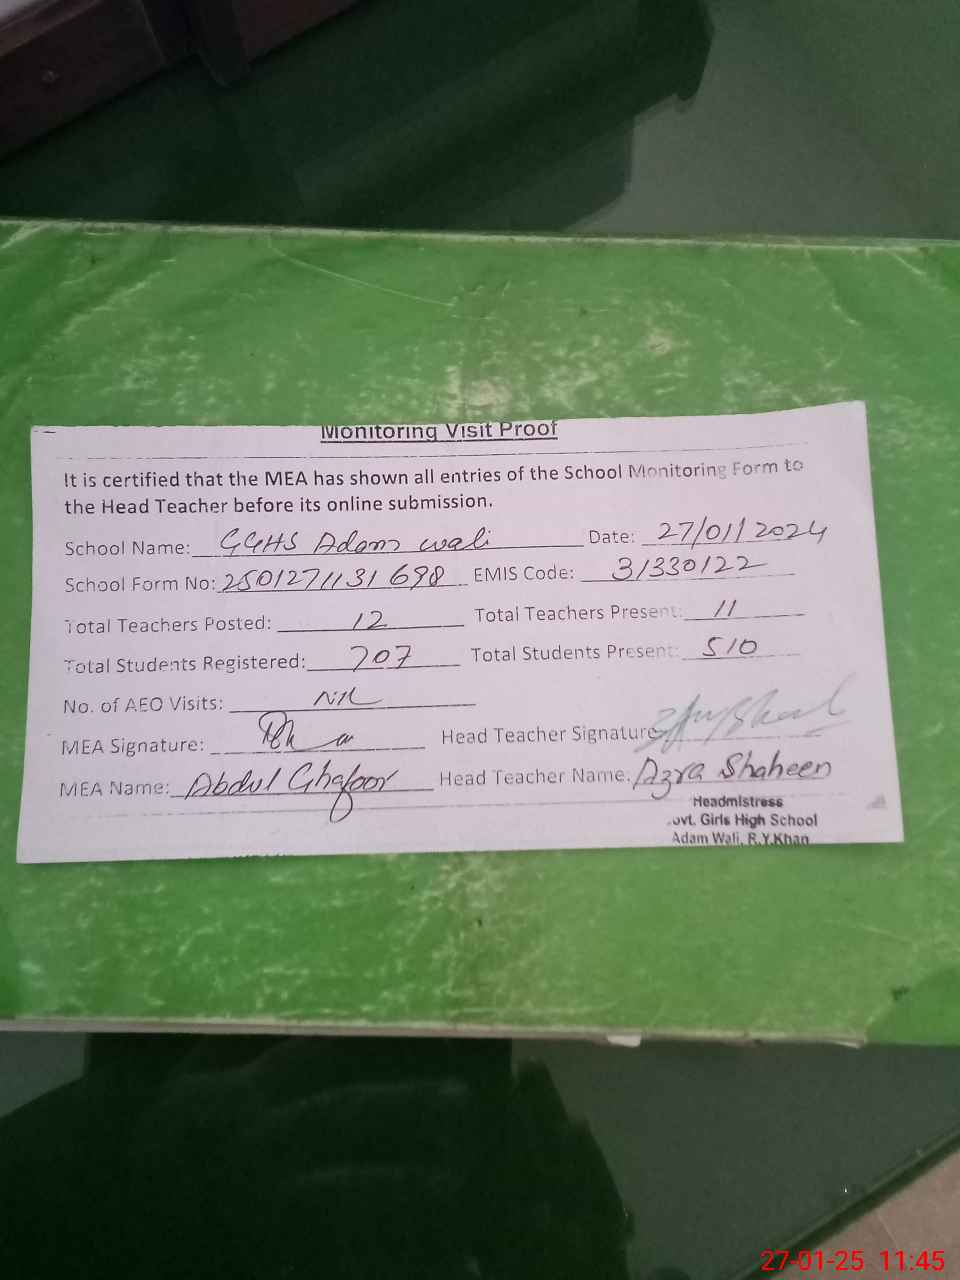 Monitoring Visit Proof
It is certified that the MEA has shown all entries of the School Monitoring Form to
the Head Teacher before its online submission.
School Name: GGHS Adam wali Date: 27/01/2024
School Form No: 2501271131698 EMIS Code: 31330122
Total Teachers Posted: 12 Total Teachers Present: 11
Total Students Registered: 707 Total Students Present: 510
No. of AEO Visits: Nil
MEA Signature: Head Teacher Signature
MEA Name: Abdul Ghafoor Head Teacher Name. Azra Shaheen
Headmistress
ovt. Girls High School
Adam Wali, R.Y.Khan
27-01-25 11:45